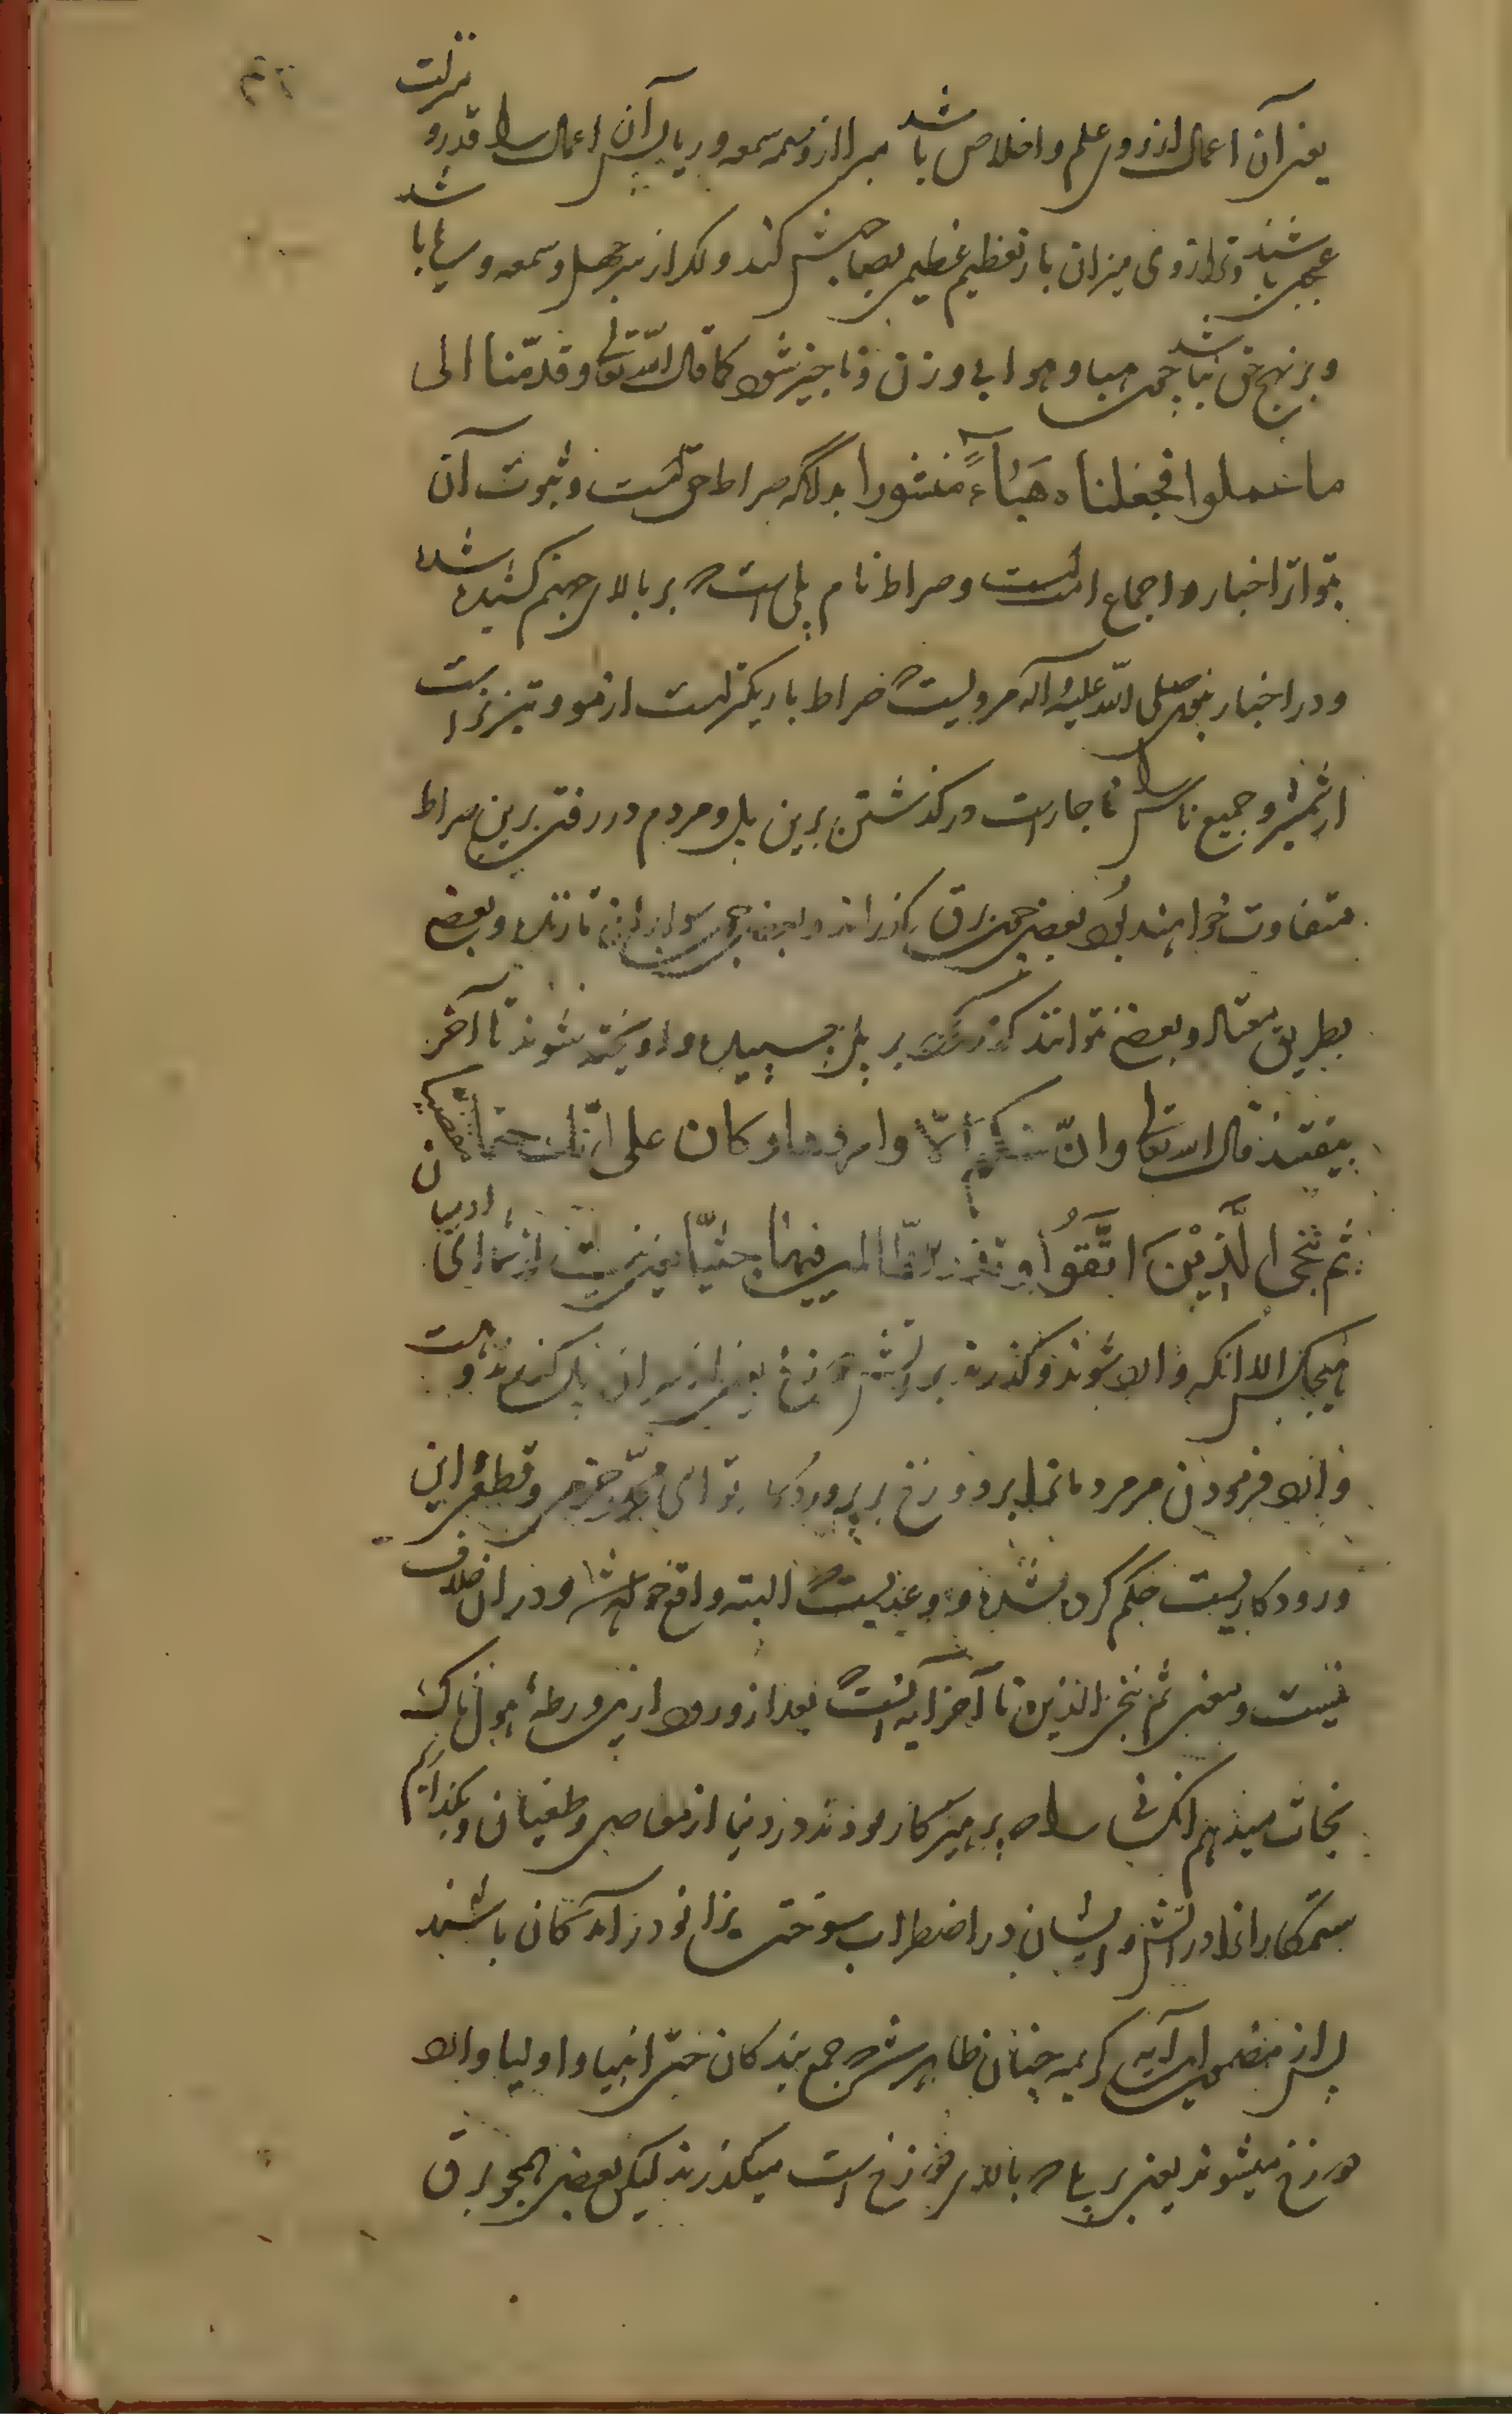 یعنی آن اعمال از روی علم و اخلاص باشد مبرا از وسمه سمعه و ریا پس آن اعمال را قدر و منزلت
عجیب باشند و ترازوی میزان بار تعظیم عظیم بصاحبش کند و اگر از سر جهل و سمعه و ریا باشد
و بر نهج حق نباشد چون هبا و هوا بی وزن و ناچیز شود کما قال الله تعالی و قدّمنا الی
ما عملوا فجعلناه هَبٰاءً منثورا بدانکه صراط حق است و ثبوت آن
بتواتر اخبار و اجماع امت است و صراط نام پلی است که بر بالای جهنم کشیده شده
و در اخبار نبوی صلی الله علیه و آله مرویست که صراط باریکتر است از مو و تیزتر است
از شمشیر و جمیع ناس را ناچار است در گذشتن برین پل و مردم در رفتن برین صراط
متفاوت خواهند بود بعضی چون برق گذرانند و بعضی چون سوار اسب تازنده و بعضی
بطریق معتاد و بعضی نتوانند گذر کرد بر پل چسپیده و آویخته شوند تا آخر
بیفتند قال الله تعالی و انّ منکم الّا واردها و کان علی ربّک حتماً مقضیا
ثم ننجی الَّذِیْنَ اتَّقَوُا و نذر الظّالمین فیها جثیّا یعنی نیست از شما ای آدمیان
هیچکس الا انکه وارد شوند و گذرنده بر آتش دوزخ یعنی از سر ان پل گذرنده است و
وارد فرمودن مر مردمانرا بر دوزخ بر پروردگار تو ای محمّد جزمی و قطعی این
ورود کاریست حکم کرده شده و وعدیست که البته واقع خواهد شد و در ان خلاف
نیست و معنی ثم ننجی الذین تا آخر آیه آنست که بعد از ورود ازین ورطهٔ هولناک
نجات میدهیم انکسانی را که پرهیزکار بودند در دنیا از معاصی و طغیان و بگذاریم
ستمکارانرا در آتش و ایشان در اضطراب سوختن بزانو درآمدگان باشند
پس از مضمون این آیه کریمه چنان ظاهر شد که جمیع بندگان حتی انبیا و اولیا وارد
دوزخ میشوند یعنی بر پلی که بالای دوزخ است میگذرند لیکن بعضی همچو برق